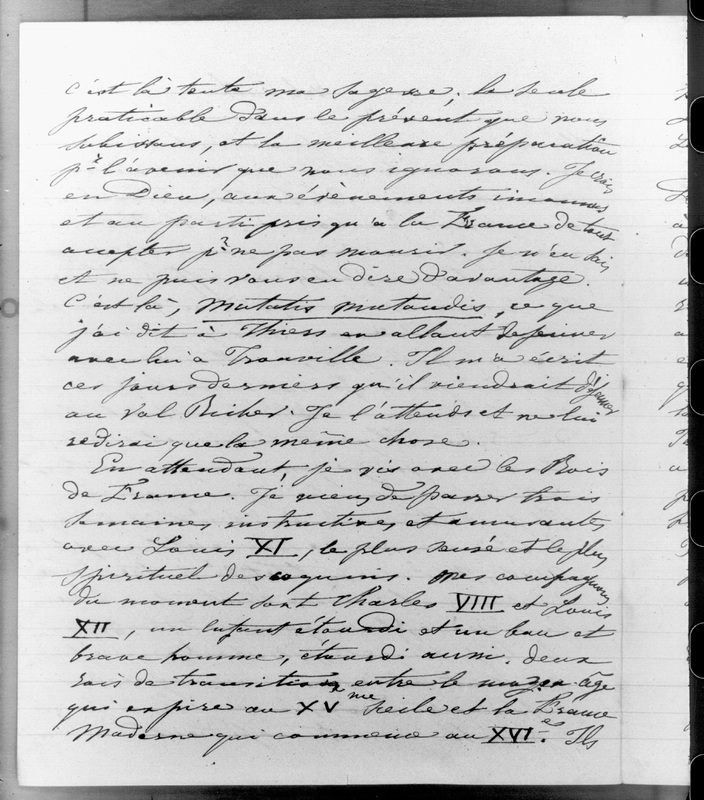 c'est là toute ma sagesse, la seule
praticable dans le présent que nous
subissons, et la meilleure préparation
pr l'avenir que nous ignorons. Je crois
en Dieu, aux évènements inconnus
et au parti pris qu'a la France de tout
accepter pr ne pas mourir. Je n'en sais
et ne puis vous en dire d'avantage.
C'est là, mutatis mutandis, ce que
j'ai dit à Thiers en allant déjeuner
avec lui à Trouville. Il m'a écrit
ces jours derniers qu'il viendrait déjeuner
au Val Richer. Je l'attends et ne lui
redirai que la même chose.
En attendant, je vis avec les Rois
de France. Je viens de passer trois
semaines instructives et amusantes
avec Louis XI, le plus sensé et le plus
spirituel des coquins. Mes compagnons
du moment sont Charles VIII et Louis
XII, un enfant étourdi et un bon et
brave homme, étourdi aussi. Deux
rois de transition entre le moyen-âge
qui expire au XVme siècle et la France
Moderne qui commence au XVIes. Ils